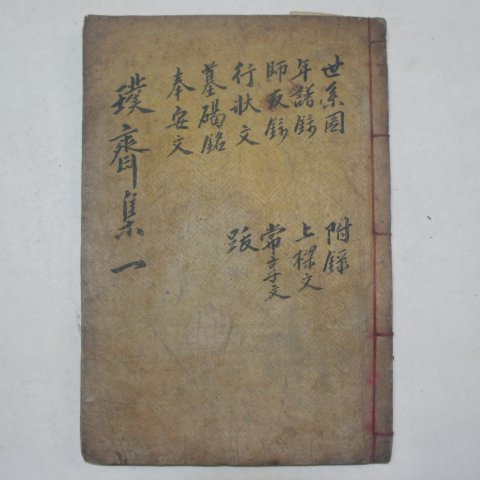 世系圖
年譜錄
師友錄
行狀文
墓碣銘
奉安文
附錄
上樑文
常享文
跋
璞齋集一